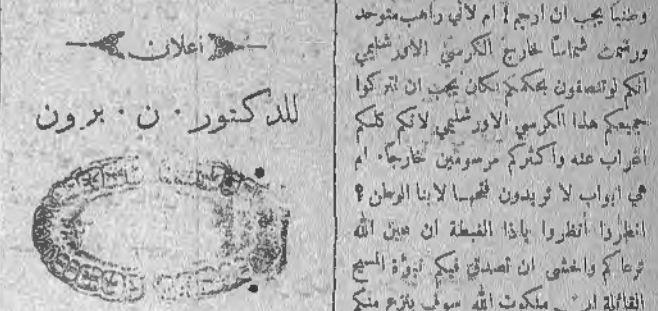 وطنياً يجب ان ارجم ؟ ام لاني راهب متوحد
ورسمت شماساً خارج الكرسي الاورشليمي
انكم لو تنصفون بحكمكم لكان يجب ان تتركوا
جميعكم هذا الكرسي الاورشليمي لانكم كلكم
اغراب عنه واكثركم مرسومين خارجاً ٠ ام
هي ابواب لا تريدون فتحها لابنا الوطن ؟
انظروا أنظروا ياذا الغبطة ان عين الله
ترعاكم واخشى ان تصدق فيكم نبوّة المسيح
القائلة ان ملكوت الله سوف ينزع منكم
اعلان
للدكتور ٠ ن ٠ برون